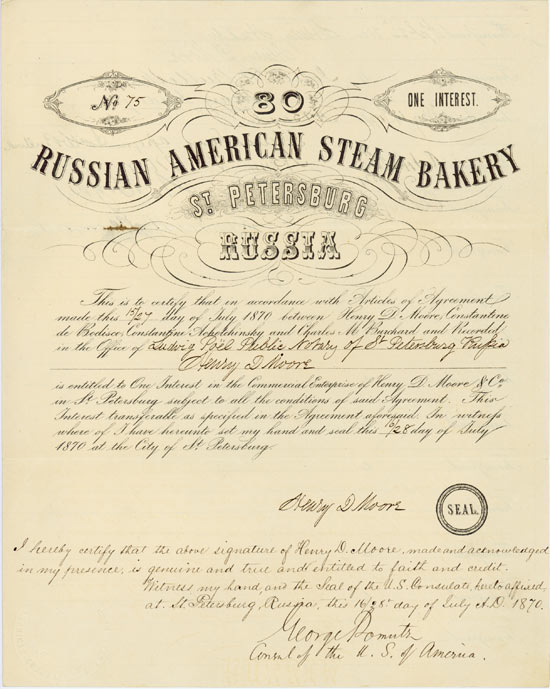 No 75
80
ONE INTEREST.
RUSSIAN AMERICAN STEAM BAKERY
ST. PETERSBURG
RUSSIA
This is to certify that in accordance with Articles of Agreement
made this 15/27 day of July 1870 between Henry D. Moore, Constantine
de Bodisco, Constantine and Charles M. Burchard and Recorded
in the Office of Ludwig Public Notary of St Petersburg Russia
Henry D Moore
is entitled to One Interest in the Commercial Enterprise of Henry D. Moore & Co
in St. Petersburg subject to all the conditions of said Agreement. This
Interest transferable as specified in the Agreement aforesaid. In witness
where of I have hereunto set my hand and seal this 16/28 day of July
1870 at the City of St. Petersburg
Henry D Moore
SEAL.
I hereby certify that the above signature of Henry D. Moore, made and acknowledged
in my presence, is genuine and true and entitled to faith and credit.
Witness my hand, and the Seal of the U.S. Consulate, hereto affixed,
at St. Petersburg, Russia, this 16/28th day of July A.D. 1870.
George Pomutz
Consul of the U. S. of America.